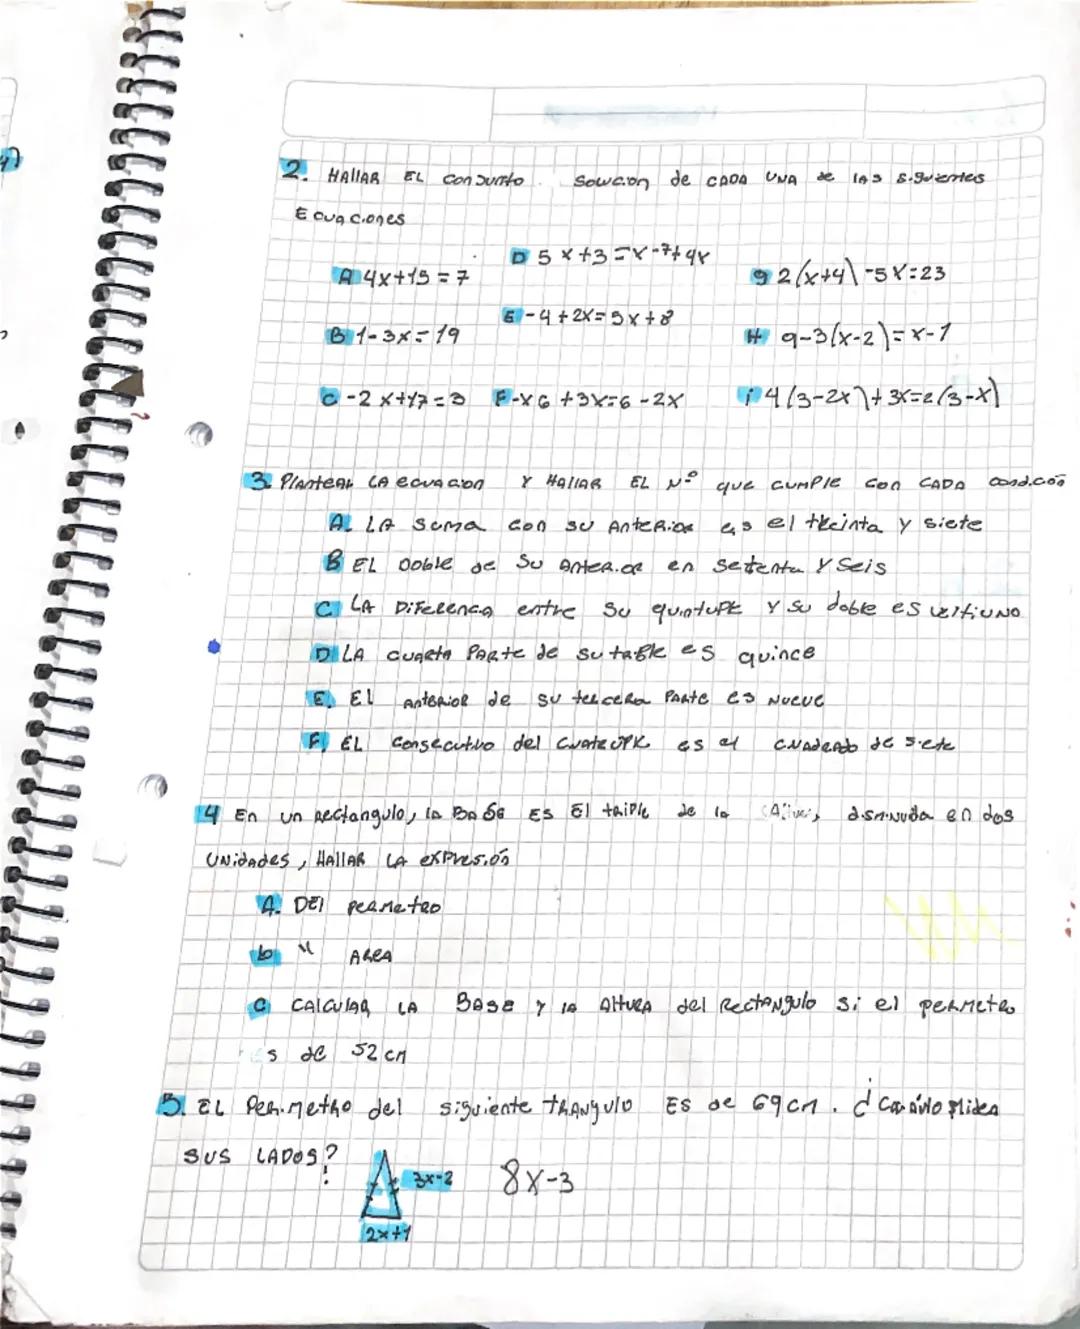 2. HALLAR EL CONJUNTO SOLUCION de CADA UNA de LAS siguientes
Ecuaciones
A 4x+15=7
D 5x+3=x-7+4x
g 2(x+4)-5x=23
B 1-3x=19
E -4+2x=5x+8
H 9-3(x-2)=x-1
C -2x+17=3
F -x6+3x=6-2x
i 4(3-2x)+3x=2(3-x)
3. PlanteAR LA ecuacion Y HALLAR EL Nº que CUMPle con CADA condición
A. LA Suma con su ANTERior es el treinta y siete
B EL Doble de Su Anterior en Setenta Y Seis
C LA DiFerencia entre Su quintuple Y su doble es
D LA cuarta Parte de su es quince
E. El Anterior de su tercera Parte es Nueve
F. EL Consecutivo del es el cuadrado de siete
4 En un rectangulo, la BaSe ES El triple de la Altura, disminuida en dos
UNidades, HALLAR LA exPresión
A. DEl perimetro
b " AREA
C CALCULAR LA BASE y la Altura del Rectangulo si el perimetro
es de 52 cm
5. EL Perimetro del siguiente TRIANgulo ES de 69 cm. ¿Cuanto miden
SUS LADOS?
3x-2
8x-3
2x+1